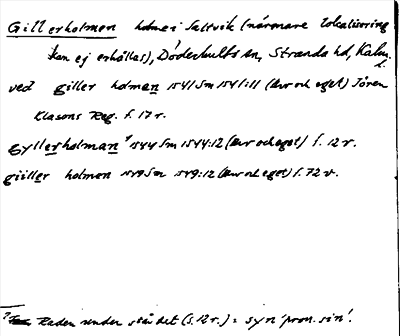 Gillerholmen holme i Saltvik (närmare lokalisering
kan ej erhållas), Döderhults sn, Stranda hd, Kalm. l.
ved giller holmen 1541 Sm 1541:11 (avr och eget) Jören
Klasons Reg. f. 17 r.
Gyllerholman ? 1544 Sm 1544:12 (avr och eget) f. 12 r.
giiller holmen 1549 Sm 1549:12 (avr och eget) f. 72 v.
? Raden under står det (s. 12 r.) = syn 'pron. sin'.